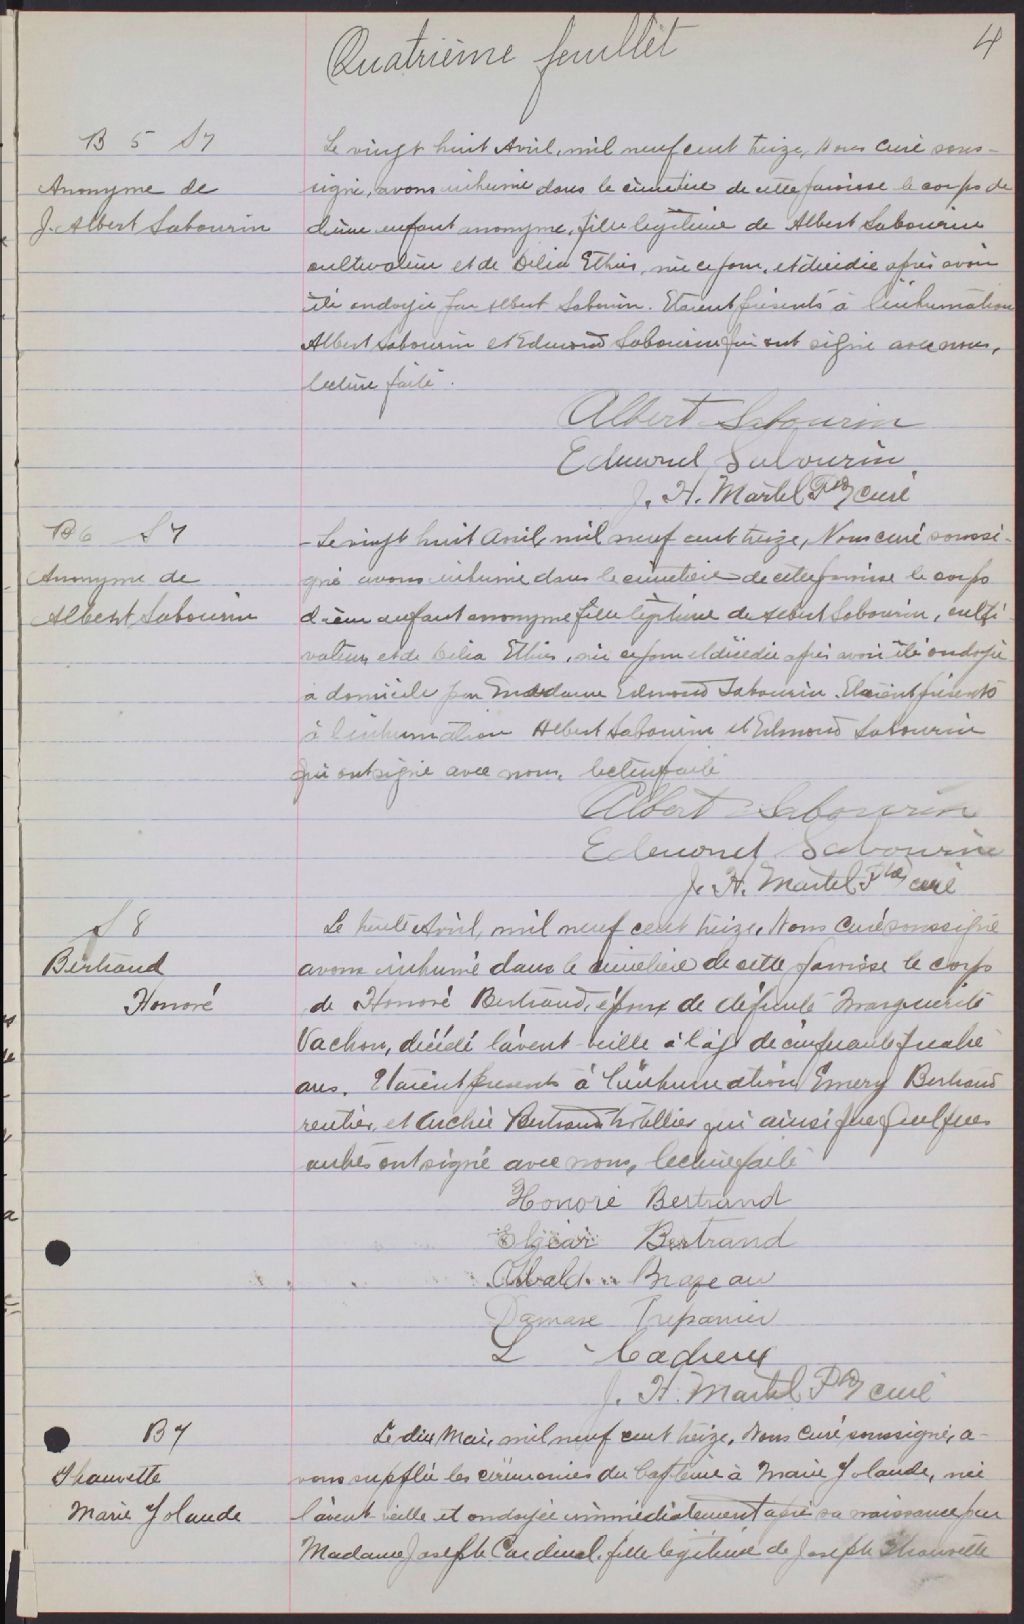 Quatrième feuillet
4
B 5 S 7
Anonyme de
J. Albert Sabourin
Le vingt huit Avril, mil neuf cent treize, Nous curé sous-
signé, avons inhumé dans le cimetière de cette paroisse le corps de
d'une enfant anonyme, fille légitime de Albert Sabourin
cultivateur et de Délia Ethier, née ce jour, et décédée après avoir
été ondoyée par Albert Sabourin. Etaient présents à l'inhumation
Albert Sabourin et Edmond Sabourin qui ont signé avec nous,
lecture faite.
Albert Sabourin
Edmond Sabourin
J. H. Martel Ptre curé
B 6 S 7
Anonyme de
Albert Sabourin
- Le vingt huit Avril mil neuf cent treize, Nous curé soussi-
gné avons inhumé dans le cimetière de cette paroisse le corps
d'un enfant anonyme fille légitime de Albert Sabourin, culti-
vateur et de Délia Ethier, née ce jour et décédée après avoir été ondoyée
à domicile par Madame Edmond Sabourin. Etaient présents
à l'inhumation Albert Sabourin et Edmond Sabourin
qui ont signé avec nous, lecture faite
Albert Sabourin
Edmond Sabourin
J. H. Martel Ptre curé
S 8
Bertrand
Honoré
Le trente Avril, mil neuf cent treize, Nous Curé soussigné
avons inhumé dans le cimetière de cette paroisse le corps
de Honoré Bertrand, époux de défunte Marguerite
Vachon, décédé l'avent-veille à l'âge de cinquante quatre
ans. Etaient présents à l'inhumation Emery Bertrand
rentier, et Archie Bertrand hôtellier qui ainsi que quelques
autres ont signé avec nous, lecture faite
Honoré Bertrand
Elzéar Bertrand
Brazeau
Damase Trepanier
L Cadieux
J. H. Martel Ptre curé
B 7
Thauvette
Marie Yolande
Le dix Mai, mil neuf cent treize, Nous Curé soussigné, a-
vons supplée les cérémonies du baptème à Marie Yolande, née
l'avent-veille et ondoyée immédiatement après sa naissance par
Madame Joseph Cardinal, fille légitime de Joseph Thauvette